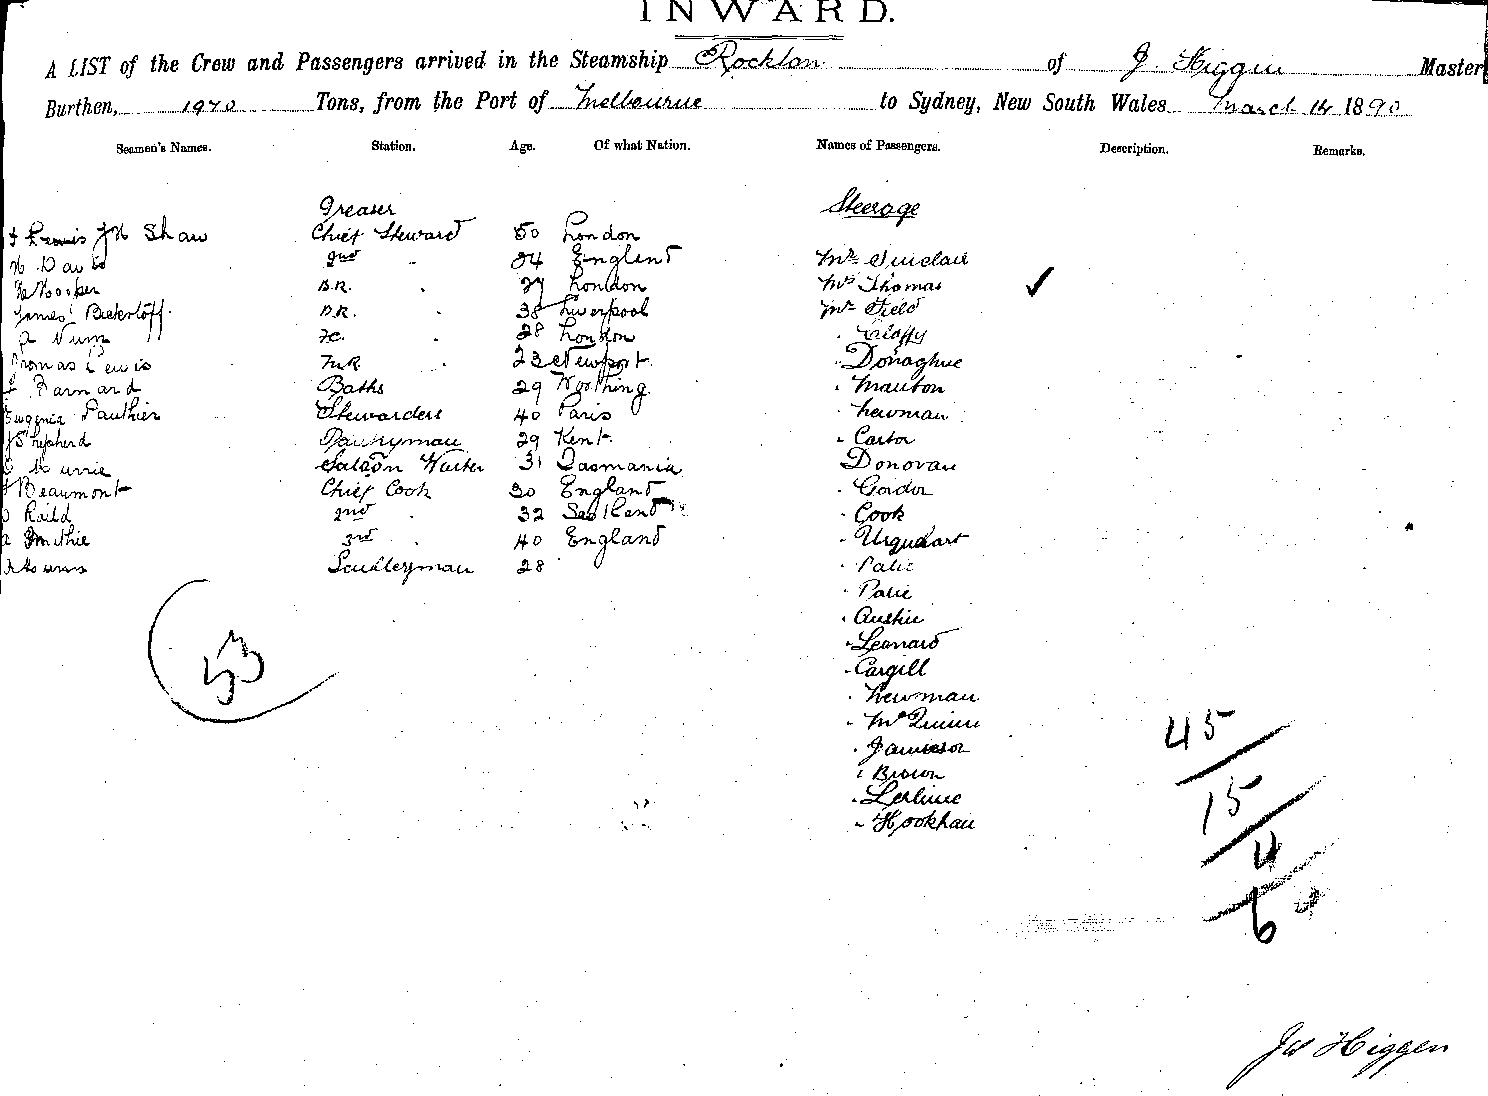 INWARD.
A LIST of the Crew and Passengers arrived in the Steamship Rockton of J. Higgen Master
Burthen, 1970 Tons, from the Port of Melbourne to Sydney, New South Wales March 14 1890
Seamen's Names. Station. Age. Of what Nation. Names of Passengers. Description. Remarks.
Greaser Steerage
Francis Shaw Chief Steward 50 London
2nd 34 England Mr Sinclair
Hooper B.R. 27 London Mrs Thomas ✓
James B.R. 38 Liverpool Mr Field
28 London
Thomas Lewis 23 Newport Donaghue
Barnard Baths 29 Worthing Manton
Eugenia Pauthier Stewardess 40 Paris Newman
Shepherd Pantryman 29 Kent Carter
Currie Saloon Waiter 31 Tasmania Donovan
Beaumont Chief Cook 30 England Gordon
2nd 32 Scotland Cook
3rd 40 England Urquhart
Sculleryman 28
Austin
Leonard
Cargill
Newman
McQuinn
Jamieson
Brown
Hookham
53
45
15
4
64
Jos Higgen